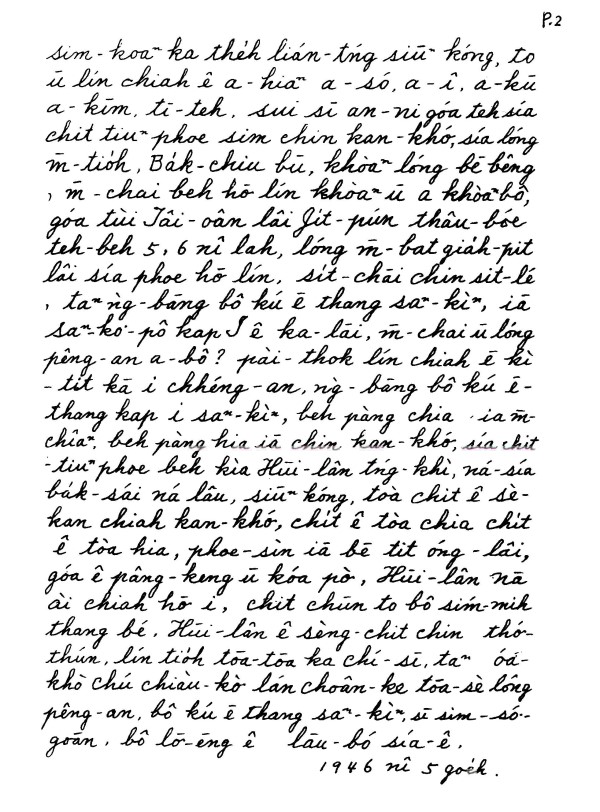 P.2
sim-koaⁿ ka the̍h lián-tńg siūⁿ kóng, to
ū lín chiah ê a-hiaⁿ a-só, a-î, a-kū
a-kīm, tī-teh, sui sī an-ni góa teh siá
chit tiuⁿ phoe sim chin kan-khó͘, siá lóng
m̄-tio̍h, Ba̍k-chiu bū, khòaⁿ lóng bē bêng
, m̄-chai beh hō͘ lín khòaⁿ ū a khòaⁿ bô,
góa tùi Tâi-oân lâi Ji̍t-pún thâu-bóe
teh-beh 5, 6 nî lah, lóng m̄-bat gia̍h-pit
lâi siá phoe hō͘ lín, si̍t-chāi chin sit-lé
, taⁿ ǹg-bāng bô kú ē thang saⁿ-kìⁿ, iā
saⁿ-ko͘-pô kap I ê ka-lāi, m̄-chai ū lóng
pêng-an a-bô? pài-thok lín chiah ê kì
-tit kā i chhéng-an, ǹg-bāng bô kú ē-
thang kap i saⁿ-kìⁿ, beh pàng chia iā m̄-
chîaⁿ, beh pàng hia iā chin kan-khó͘, siá chit
-tiuⁿ phoe beh kìa Hūi-lân tńg-khì, ná-siá
ba̍k-sái ná lâu, siūⁿ kóng, tòa chit ê sè-
kan chiah kan-khó͘, chi̍t ê tòa chia chi̍t
ê tòa hia, phoe-sìn iā bē tit óng-lâi,
góa ê pâng-keng ū kóa pò, Hūi-lân nā
ài chiah hō͘ i, chit chūn to bô sím-mih
thang bé, Hūi-lân ê sèng-chit chin thó͘-
thún, lín tio̍h tōa-tōa ka chí-sī, taⁿ óa-
khò chú chiàu-kò͘ lán choân-ke tōa-sè lóng
pêng-an, bô kú ē thang saⁿ-kìⁿ, sī sim-só͘-
goān, bô lō͘-ēng ê lāu-bó siá-ê.
1946 nî 5 goe̍h.